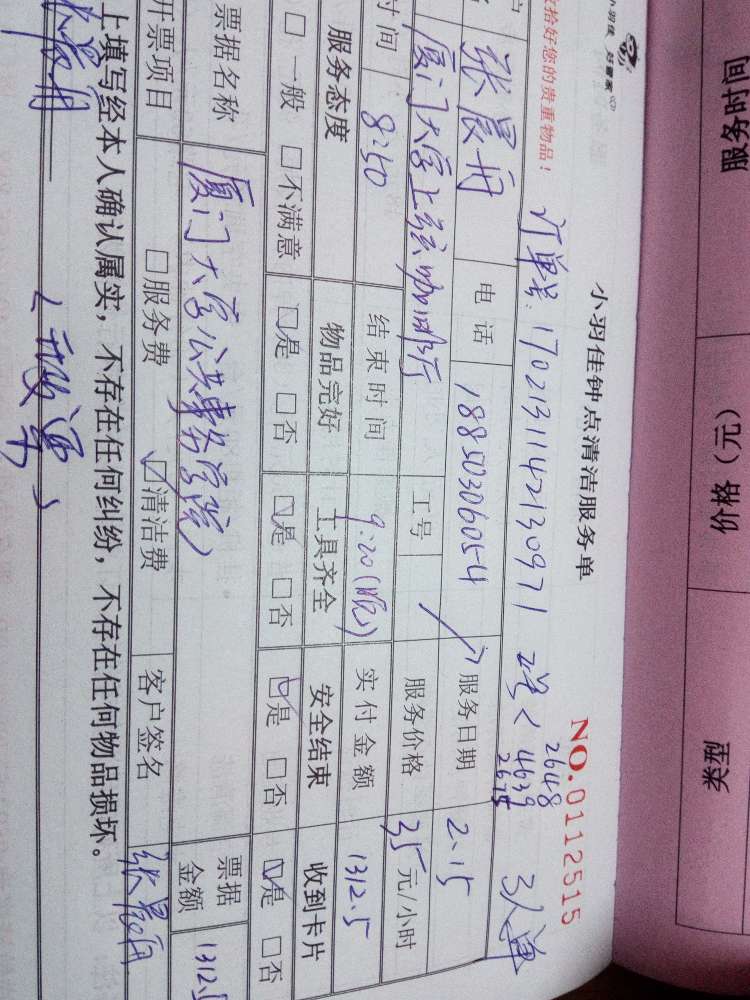 服务时间
价格（元）
类型
小羽佳 好管家
收拾好您的贵重物品！
小羽佳钟点清洁服务单
NO.0112515
订单号: 1702131142130971
2648
4639
2675
3人单
电话 18850306054 服务日期 2.15
厦门大学上弦咖啡厅 工号 服务价格 35元/小时
时间 8:50 结束时间 9:20(晚) 实付金额 1312.5
服务态度 物品完好 工具齐全 安全结束 收到卡片
□一般 □不满意 ☑是 □否 ☑是 □否 ☑是 □否 ☑是 □否
票据名称 厦门大学公共事务学院 票据金额
开票项目 □服务费 ☑清洁费 客户签名
上填写经本人确认属实，不存在任何纠纷，不存在任何物品损坏。